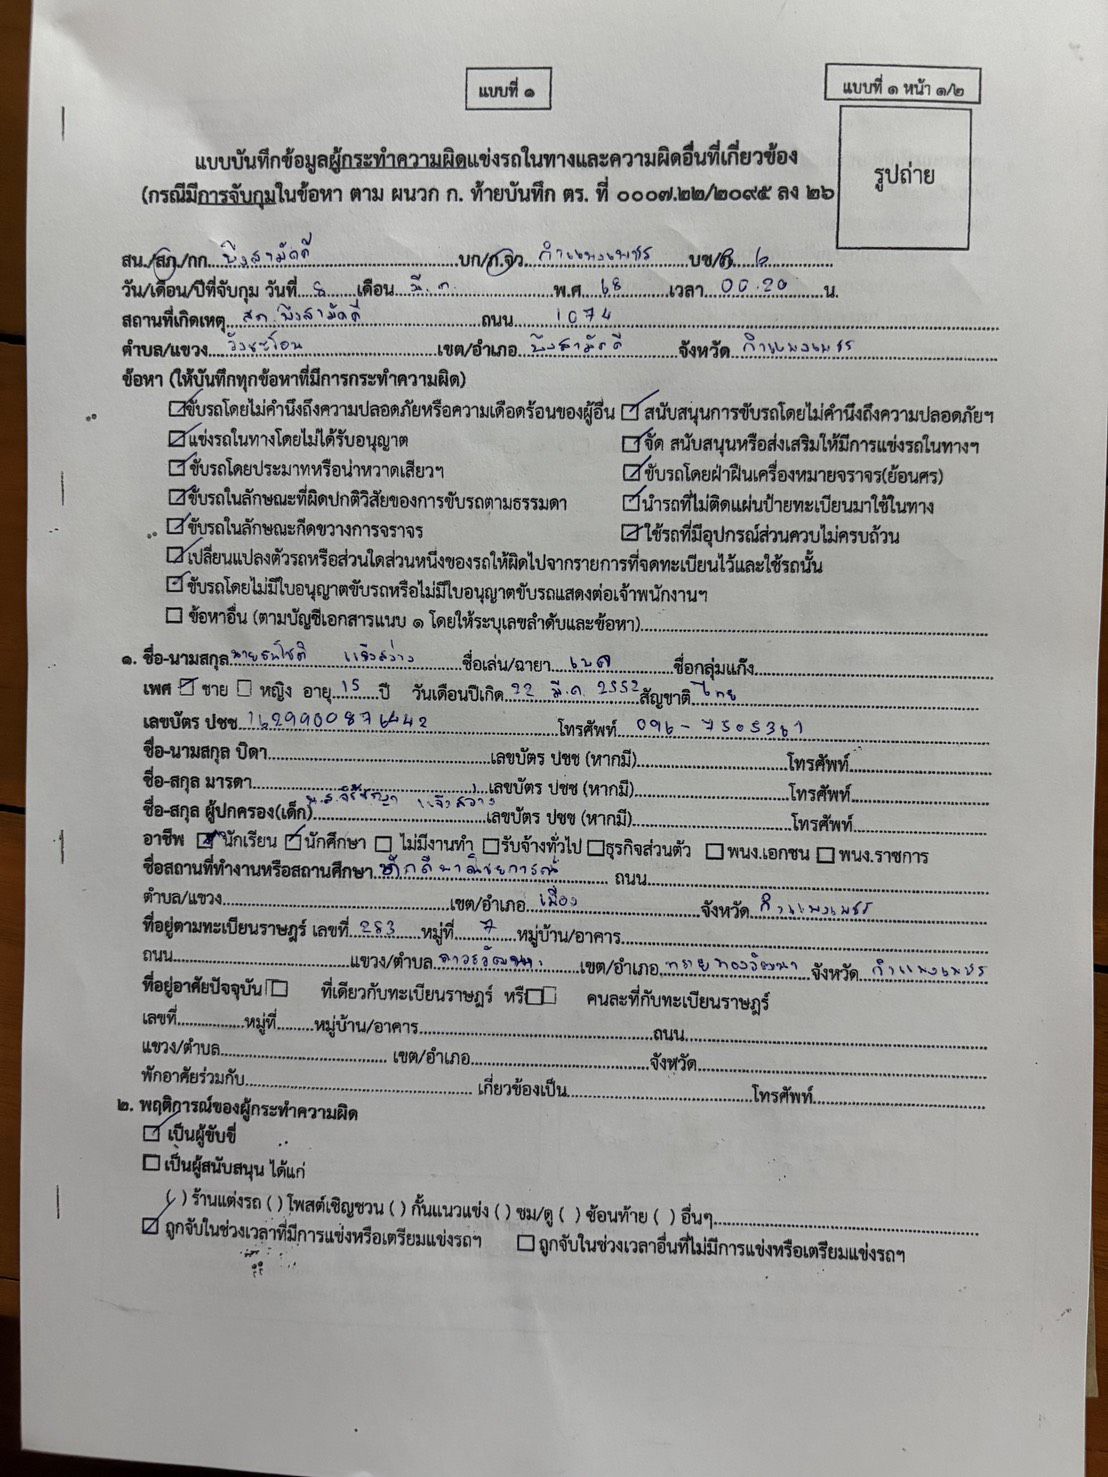 แบบที่ ๑
แบบที่ ๑ หน้า ๑/๒
แบบบันทึกข้อมูลผู้กระทำความผิดแข่งรถในทางและความผิดอื่นที่เกี่ยวข้อง
(กรณีมีการจับกุมในข้อหา ตาม ผนวก ก. ท้ายบันทึก ตร. ที่ ๐๐๐๗.๒๒/๒๐๙๕ ลง ๒๖
รูปถ่าย
สน./สภ./กก. บึงสามัคคี บก/ภ.จว กำแพงเพชร บช/ภ. ๖
วัน/เดือน/ปีที่จับกุม วันที่ 8 เดือน มี.ค. พ.ศ. 68 เวลา 00.20 น.
สถานที่เกิดเหตุ สภ.บึงสามัคคี ถนน 1074
ตำบล/แขวง วังชะโอน เขต/อำเภอ บึงสามัคคี จังหวัด กำแพงเพชร
ข้อหา (ให้บันทึกทุกข้อหาที่มีการกระทำความผิด)
ขับรถโดยไม่คำนึงถึงความปลอดภัยหรือความเดือดร้อนของผู้อื่น สนับสนุนการขับรถโดยไม่คำนึงถึงความปลอดภัยฯ
แข่งรถในทางโดยไม่ได้รับอนุญาต จัด สนับสนุนหรือส่งเสริมให้มีการแข่งรถในทางฯ
ขับรถโดยประมาทหรือน่าหวาดเสียวฯ ขับรถโดยฝ่าฝืนเครื่องหมายจราจร(ย้อนศร)
ขับรถในลักษณะที่ผิดปกติวิสัยของการขับรถตามธรรมดา นำรถที่ไม่ติดแผ่นป้ายทะเบียนมาใช้ในทาง
ขับรถในลักษณะกีดขวางการจราจร ใช้รถที่มีอุปกรณ์ส่วนควบไม่ครบถ้วน
เปลี่ยนแปลงตัวรถหรือส่วนใดส่วนหนึ่งของรถให้ผิดไปจากรายการที่จดทะเบียนไว้และใช้รถนั้น
ขับรถโดยไม่มีใบอนุญาตขับรถหรือไม่มีใบอนุญาตขับรถแสดงต่อเจ้าพนักงานฯ
ข้อหาอื่น (ตามบัญชีเอกสารแนบ ๑ โดยให้ระบุเลขลำดับและข้อหา)
๑. ชื่อ-นามสกุล แจ้งสว่าง ชื่อเล่น/ฉายา ชื่อกลุ่มแก๊ง
เพศ ชาย หญิง อายุ 15 ปี วันเดือนปีเกิด 22 มี.ค. 2552 สัญชาติ ไทย
เลขบัตร ปชช. 1629900876442 โทรศัพท์ 096-7505361
ชื่อ-นามสกุล บิดา เลขบัตร ปชช (หากมี) โทรศัพท์
ชื่อ-สกุล มารดา เลขบัตร ปชช (หากมี) โทรศัพท์
ชื่อ-สกุล ผู้ปกครอง(เด็ก) น.ส. แจ้งสว่าง เลขบัตร ปชช (หากมี) โทรศัพท์
อาชีพ นักเรียน นักศึกษา ไม่มีงานทำ รับจ้างทั่วไป ธุรกิจส่วนตัว พนง.เอกชน พนง.ราชการ
ชื่อสถานที่ทำงานหรือสถานศึกษา ถนน
ตำบล/แขวง เขต/อำเภอ เมือง จังหวัด กำแพงเพชร
ที่อยู่ตามทะเบียนราษฎร์ เลขที่ 253 หมู่ที่ 7 หมู่บ้าน/อาคาร
ถนน แขวง/ตำบล ถาวรวัฒนา เขต/อำเภอ ทรายทองวัฒนา จังหวัด กำแพงเพชร
ที่อยู่อาศัยปัจจุบัน ที่เดียวกับทะเบียนราษฎร์ หรือ คนละที่กับทะเบียนราษฎร์
เลขที่ หมู่ที่ หมู่บ้าน/อาคาร ถนน
แขวง/ตำบล เขต/อำเภอ จังหวัด
พักอาศัยร่วมกับ เกี่ยวข้องเป็น โทรศัพท์
๒. พฤติการณ์ของผู้กระทำความผิด
เป็นผู้ขับขี่
เป็นผู้สนับสนุน ได้แก่
( ) ร้านแต่งรถ ( ) โพสต์เชิญชวน ( ) กั้นแนวแข่ง ( ) ชม/ดู ( ) ซ้อนท้าย ( ) อื่นๆ
ถูกจับในช่วงเวลาที่มีการแข่งหรือเตรียมแข่งรถฯ ถูกจับในช่วงเวลาอื่นที่ไม่มีการแข่งหรือเตรียมแข่งรถฯ